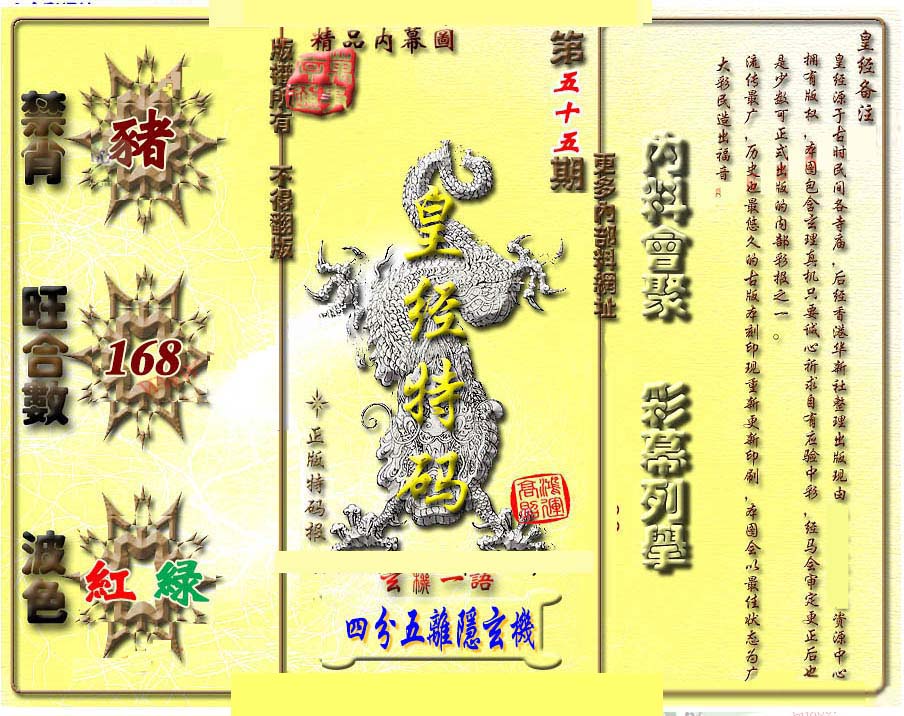 皇经备注
皇经源于古时民间各寺庙，后经香港华新社整理出版现由
资源中心
拥有版权，本图包含玄理真机只要诚心祈求自有应验中彩，经马会审定更正后也
是少数可正式出版的内部彩报之一。
流传最广，历史也最悠久的古版本刻印现重新更新印刷，本图会以最佳状态为广
大彩民造出福音
內料會聚
彩幕列舉
更多內部料網址
第五十五期
精品內幕圖
皇经特码
正版特码报
鴻運
高照
玄機一語
四分五離隱玄機
版權所有
不得翻版
禁肖
豬
旺合數
168
波色
紅 綠